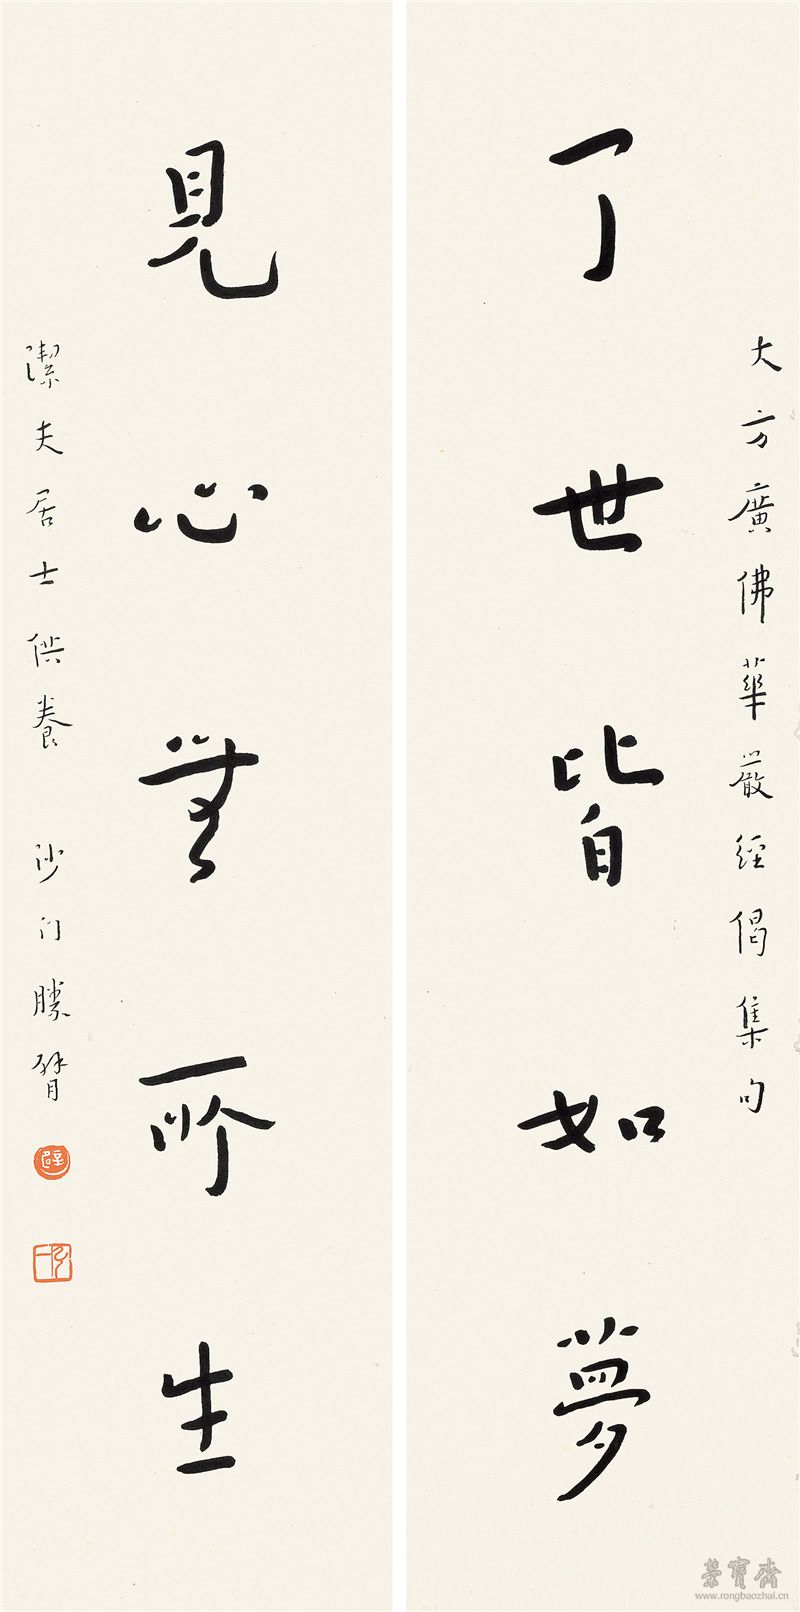 大方廣佛華嚴經偈集句
了世皆如夢
見心無所生
潔夫居士供養 沙門勝臂
弘一
榮寶齋
www.rongbaozhai.cn